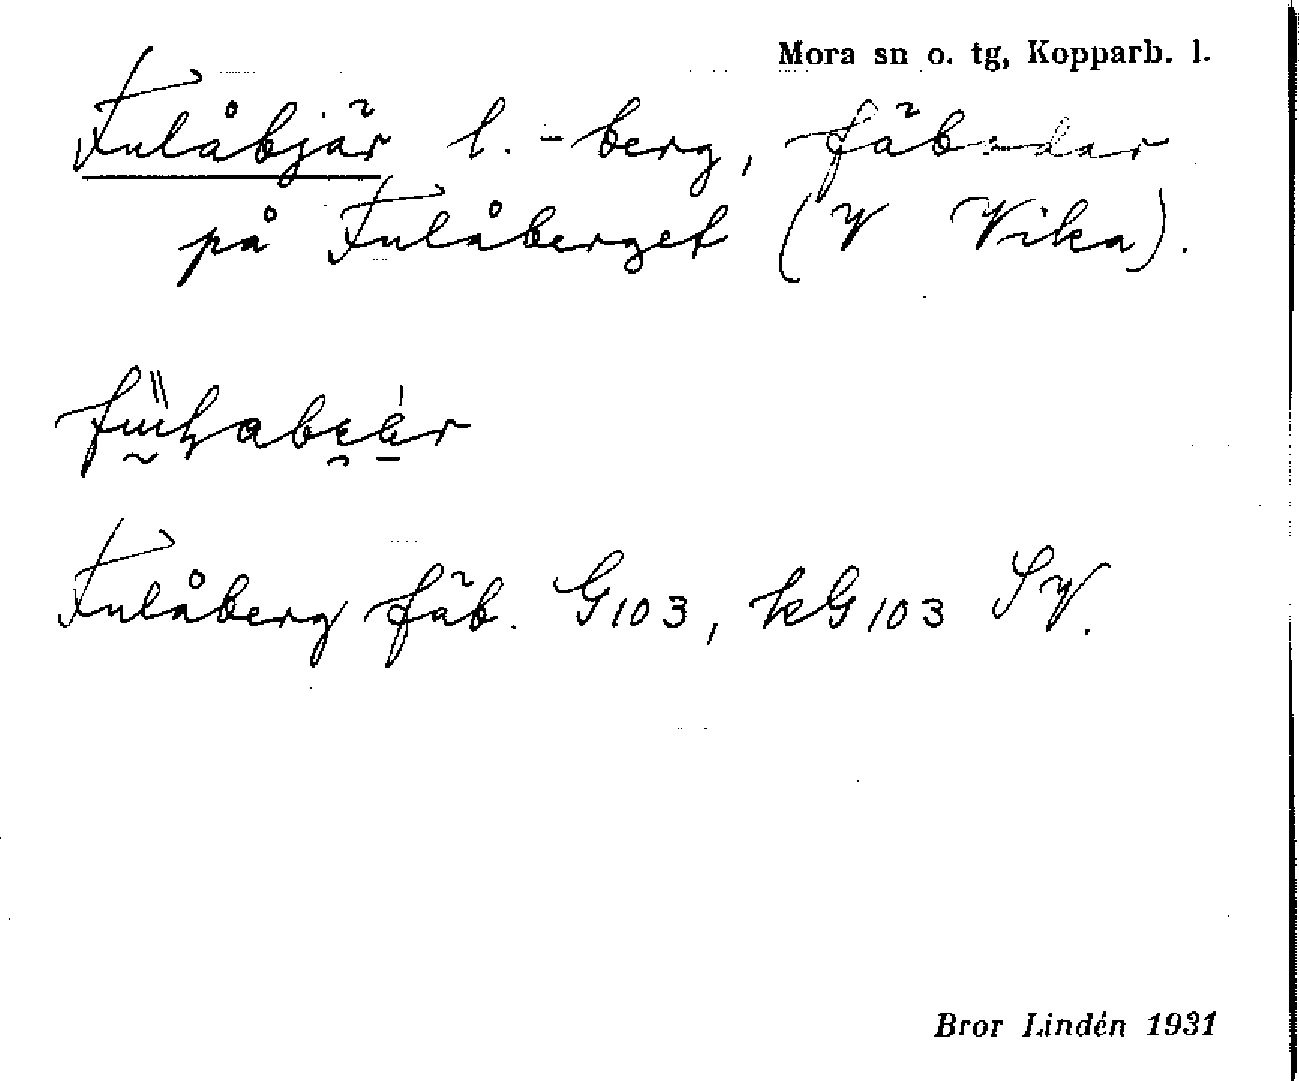 Mora sn o. tg, Kopparb. l.
Fulåbjär l. -berg, fäbodar
på Fulåberget (V Vika).
Fulåberg fäb. G103, kG103 SV.
Bror Lindén 1931